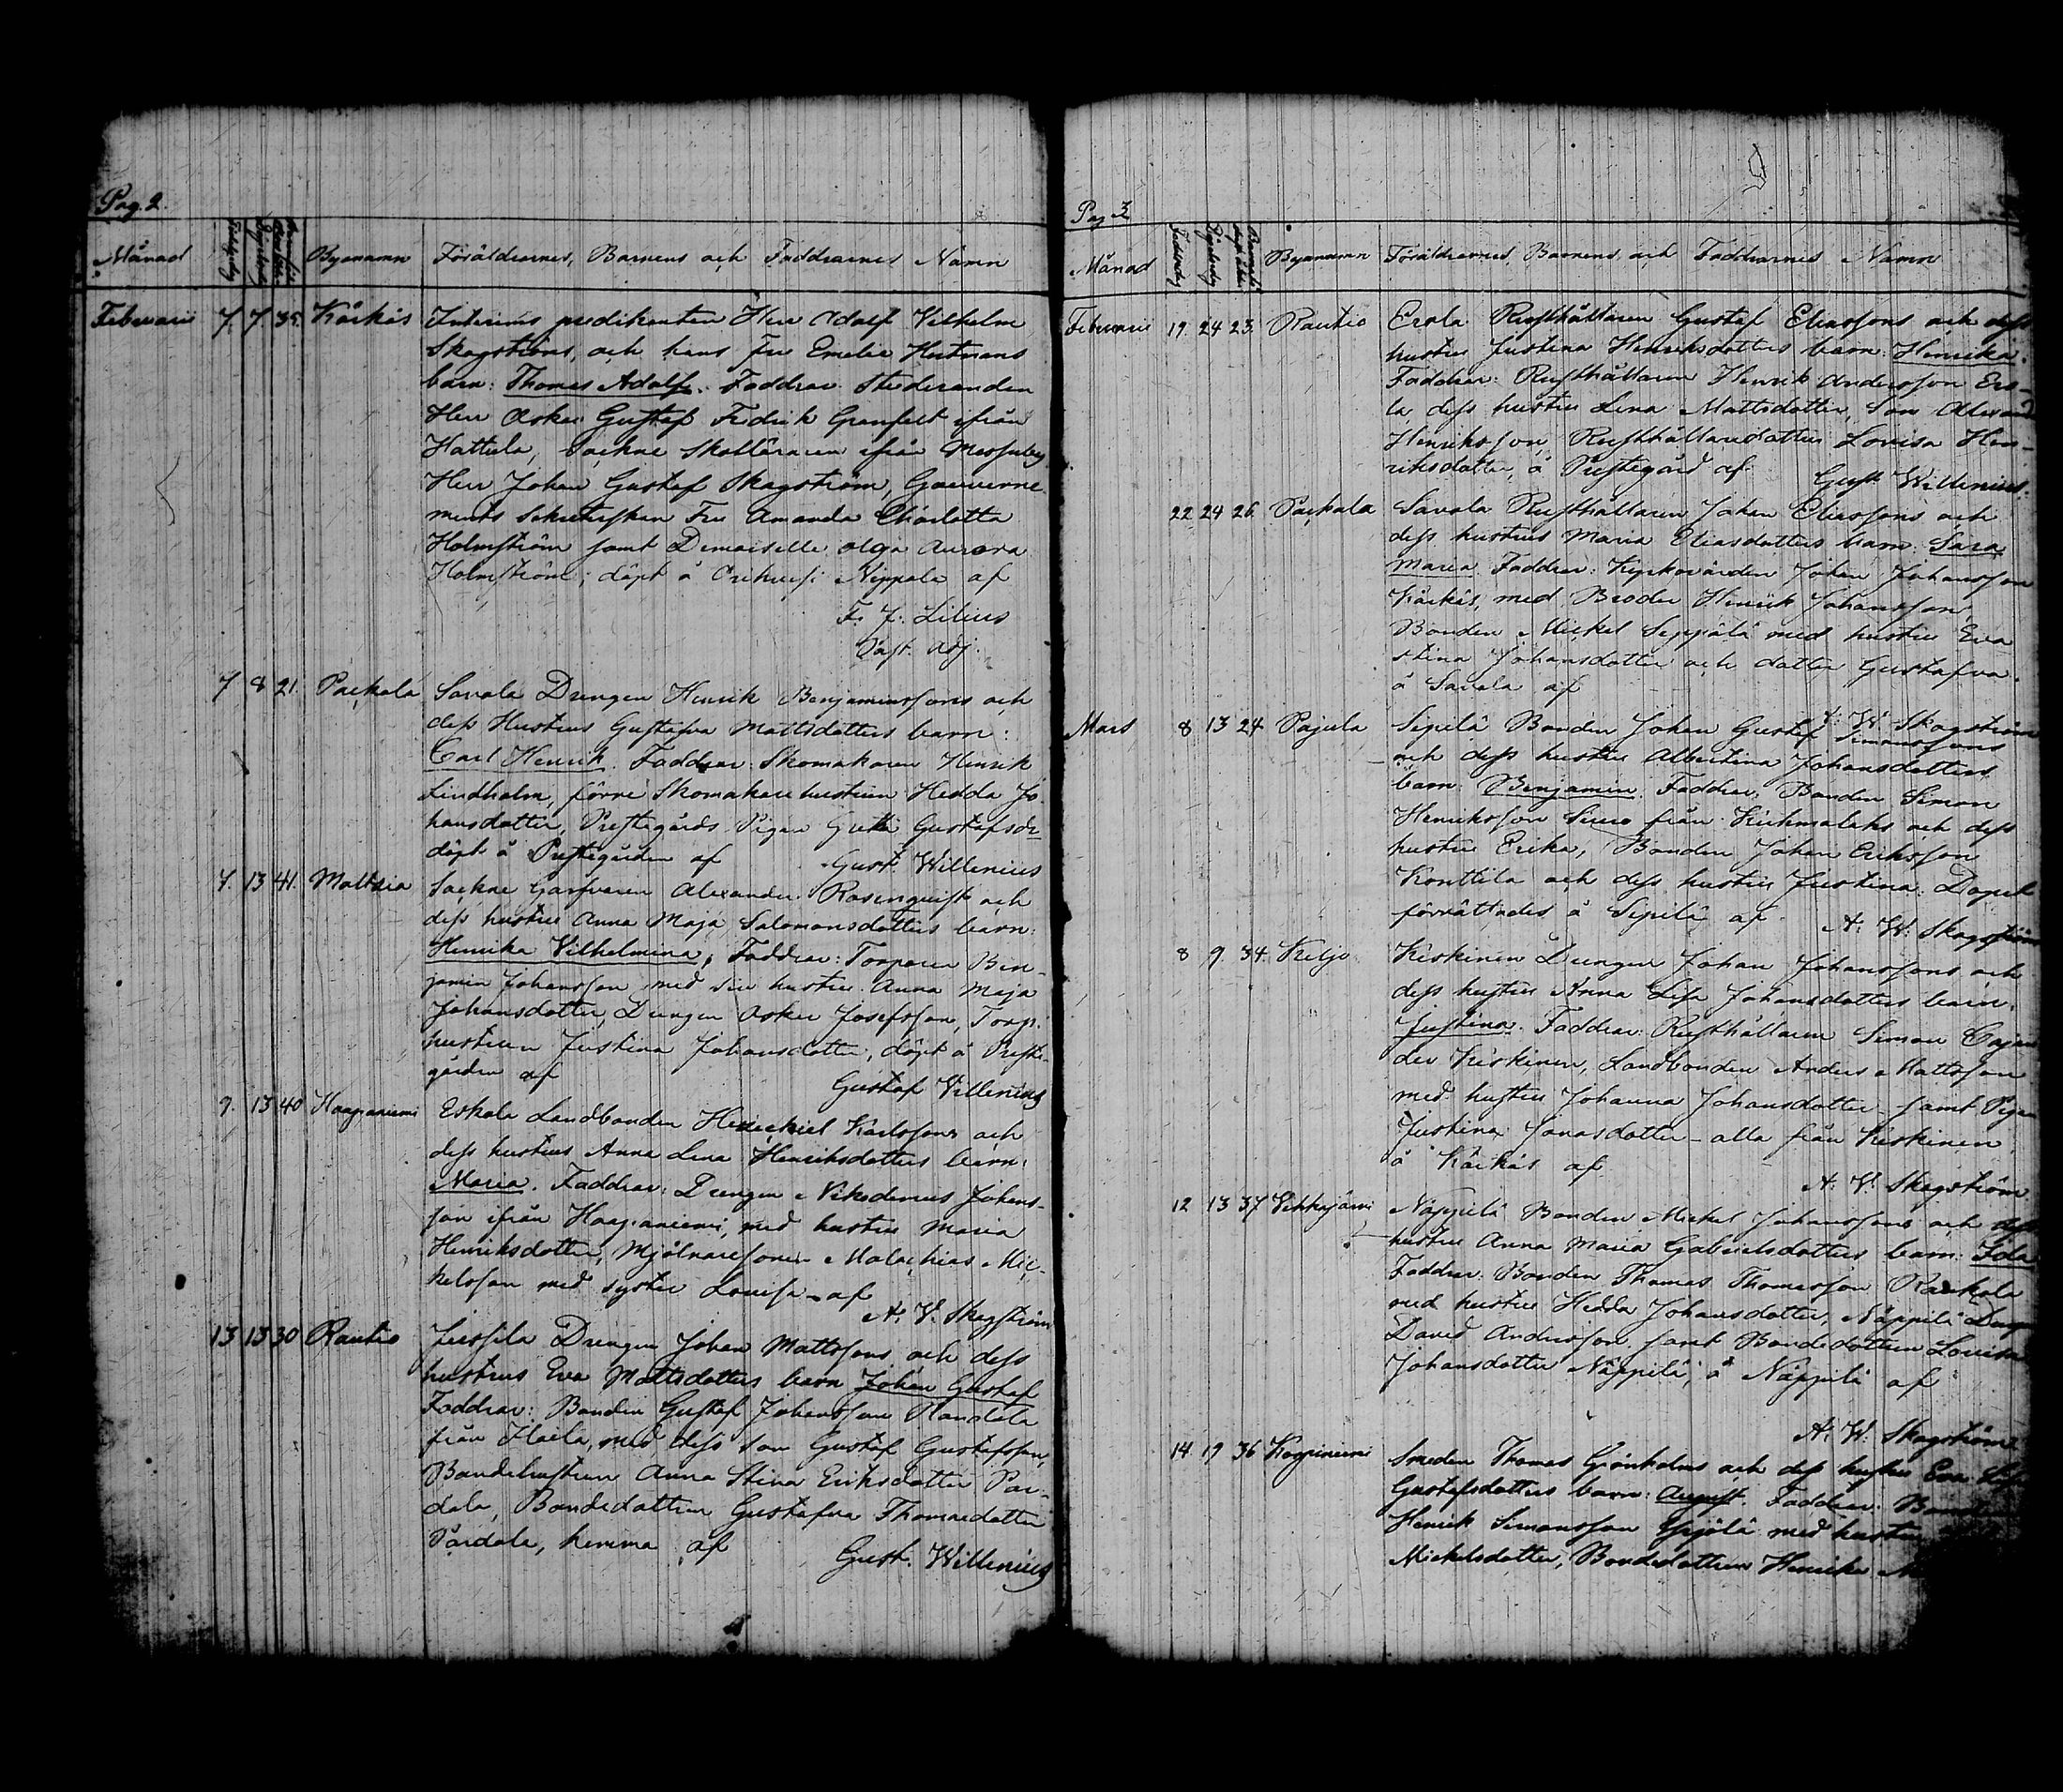 Pag. 2.
Månad Födelsedag Döpelsedag Byanamn Föräldrarnes, Barnens och Faddrarnes Namn
Februarii 7. 7. 35. Kärkis Interims predikanten Herr Adolf Vilhelm
Skogströms, och hans Fru Emelie Hartmans
barn: Thomas Adolf. Faddrar Studeranden
Herr Oskar Gustaf Fredrik Granfelt ifrån
Hattula, Sockne Skolläraren ifrån Messuby
Herr Johan Gustaf Skogström, Gouverne-
ments Sekreterskan Fru Amanda Charlotta
Holmström samt Demoiselle Olga Aurora
Holmström; döpt å Nippala af
F. J. Lilius
Past. adj.
7 8 21. Packala Savola Drengen Henrik Benjaminssons och
dess Hustrus Gustafva Mattsdotters barn:
Carl Henrik. Faddrar: Skomakaren Henrik
Lindholm, förre Skomakare hustrun Hedda Jo-
hansdotter, Prestegårds Pigan Greta Gustafsdr
döpt å Prestegården af Gust. Willenius
7. 13 41. Mattila Sockne Garfvaren Alexander Rosenquist och
dess hustru Anna Maja Salomonsdotters barn:
Henrika Vilhelmina; Faddrar: Torparen Ben-
jamin Johansson med sin hustru Anna Maja
Johansdotter, Drengen Oskar Josefsson, Torp.
hustrun Justina Johansdotter, döpt å Preste-
gården af Gustaf Villenius
9. 13 40 Haapaniemi Eskola Landbonden Hesechiel Karlssons och
dess hustrus Anna Lena Henriksdotters barn:
Maria. Faddrar: Drengen Nikodemus Johans-
son ifrån Haapaniemi, med hustru Maria
Henriksdotter, Mjölnaresonen Malachias Mic-
kelsson med syster Lovisa af
A. V. Skogström
13 13 30 Rautio Jussila Drengen Johan Mattssons och dess
hustrus Eva Mattsdotters barn Johan Gustaf
Faddrar: Bonden Gustaf Johansson
från med dess son Gustaf Gustafsson,
Bondehustrun Anna Stina Eriksdotter Par-
dala, Bondedottren Gustafva Thomasdotter
Pärdala, hemma af Gust. Willenius
Pag 3
Månad Födelsedag Döpelsedag Byanamn Föräldrarnes, Barnens och Faddrarnes Namn
Februarii 19. 24 23. Rautio Erola Rusthållaren Gustaf Eliassons och dess
hustru Justina Henriksdotters barn: Henrika.
Faddrar: Rusthållaren Henrik Andersson Ero-
la dess hustru Lena Mattsdotter, Son
Henriksson, Rusthållaredotter Lovisa Hen-
riksdotter, å Prestegård af Gust Willenius.
22. 24 26. Packala Savola Rusthållaren Johan Eliassons och
dess hustrus Maria Eliasdotters barn: Sara
Maria. Faddrar: Kyrkovärden Johan Johansson
Kärkis, med Broder Henrik Johansson,
Bonden Mickel Seppälä med hustru Eva
Stina Johansdotter och dotter Gustafva.
å Savola af
A. W. Skogström
Mars 8 13 24. Pajula Sipilä Bonden Johan Gustaf Simonssons
och dess hustru Albertina Johansdotters
barn: Benjamin. Faddrar: Bonden Simon
Henriksson från och dess
hustru Erika, Bonden Johan Eriksson
Konttila och dess hustru Justina. Dopet
förrättades å Sipilä af
A. W. Skogström
8 9. 34. Keljo Kiskinen Drengen Johan Johanssons och
dess hustru Anna Lisa Johansdotters barn.
Justina. Faddrar: Rusthållaren Simon Cajan
der Kiskinen, Landbonden Anders Mattsson
med hustru Johanna Johansdotter samt Pigan
Justina Jonasdotter – alla från Kiskinen
å Kärkis af
A. V. Skogström
12 13 37 Vehkajärvi Näppilä Bonden Mickel Johanssons och dess
hustru Anna Maria Gabrielsdotters barn: Ida
Faddrar: Bonden Thomas Thomasson
med hustru Hedda Johansdotter, Näppilä
David Andersson samt Bondedottren Lovisa
Johansdotter Näppilä, å Näppilä af
A. W. Skogström
14. 19 36 Smeden Thomas Grönholms och dess hustru Eva
Gustafsdotters barn: August. Faddrar:
Henrik Simonsson Yrjölä med hustru
Mickelsdotter, Bondedottren Henrika